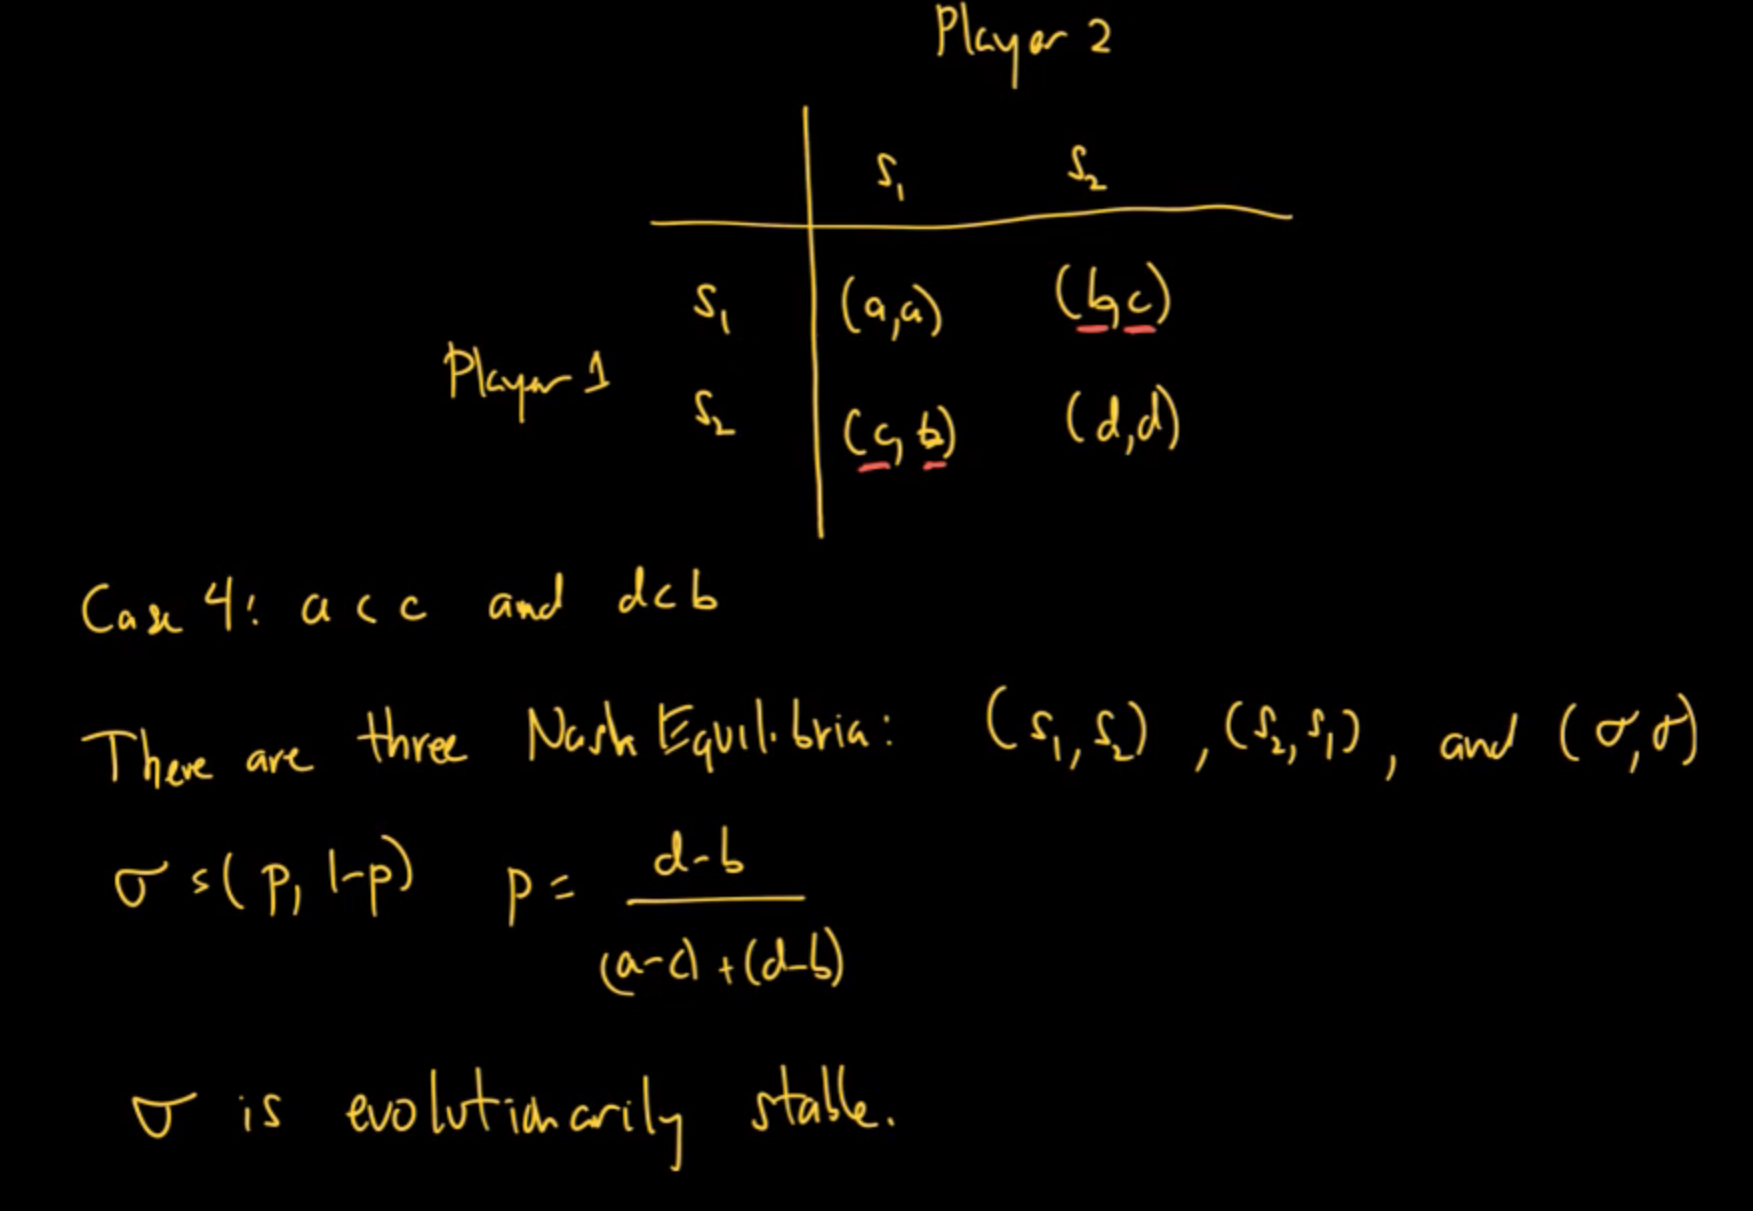 Player 2
S₁ S₂
S₁ (a,a) (b,c)
Player 1
S₂ (c,b) (d,d)
Case 4: a < c and d < b
There are three Nash Equilibria: (S₁, S₂), (S₂, S₁), and (σ, σ)
σ = (p, 1-p) p = (d-b) / ((a-c) + (d-b))
σ is evolutionarily stable.